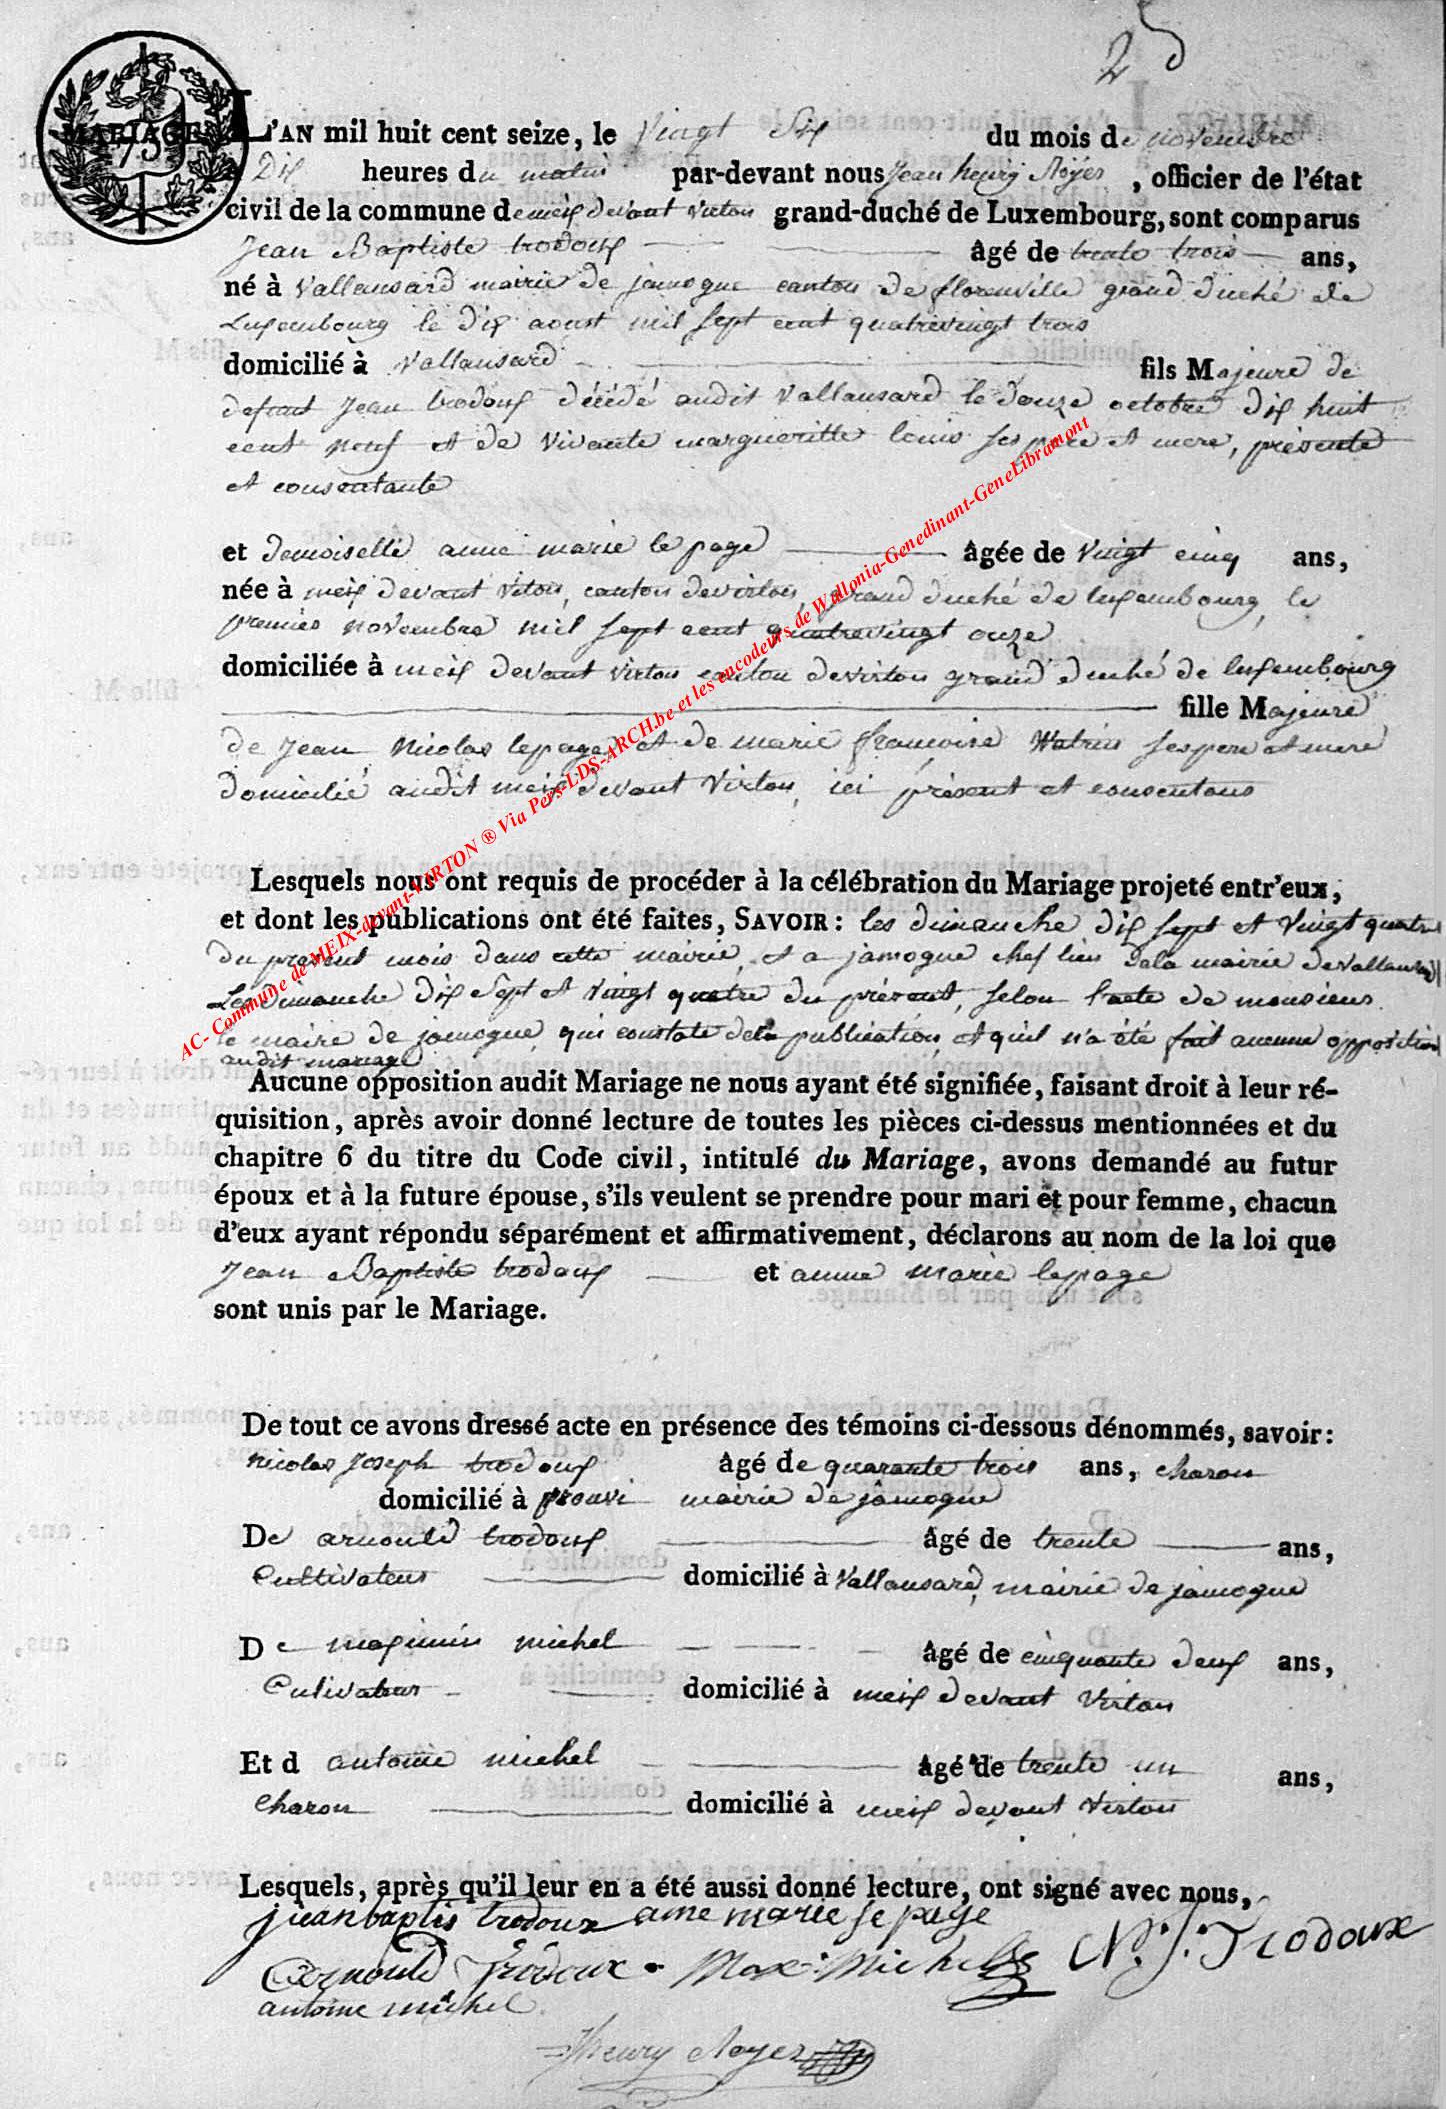 25
MARIAGE 75 L'AN mil huit cent seize, le Vingt Six du mois de novembre
à Dix heures du matin par-devant nous Jean henry Noyés, officier de l'état
civil de la commune de meix devant virton grand-duché de Luxembourg, sont comparus
Jean Baptiste trodoux âgé de trente trois ans,
né à Vallansard mairie de jamogne canton de florenville grand duché de
Luxembourg le dix aoust mil sept cent quatrevingt trois
domicilié à Vallansard fils Majeure de
defunt Jean trodoux décédé audit Vallansard le douze octobre dix huit
cent neuf et de vivante margueritte louis ses pere et mere, présente
et consentante
et demoiselle anne marie le page âgée de Vingt cinq ans,
née à meix devant vitton, canton devirton, grand duché de luxembourg, le
premier novembre mil sept cent quatrevingt onze
domiciliée à meix devant virton canton devirton grand duché de luxembourg
fille Majeure
de Jean Nicolas lepage et de marie françoise Watrin ses pere et mere
domicilié audit meix devant Virton, ici présent et consentans
Lesquels nous ont requis de procéder à la célébration du Mariage projeté entr'eux,
et dont les publications ont été faites, SAVOIR : les dimanche dix sept et Vingt quatre
du présent mois dans cette mairie, et a jamogne chef lieu dela mairie deVallansard
Les dimanche dix sept et vingt quatre du présent, selon l'acte de monsieur
le maire de jamogne qui constate dela publication, et quil n'a été fait aucune opposition
audit mariage
Aucune opposition audit Mariage ne nous ayant été signifiée, faisant droit à leur ré-
quisition, après avoir donné lecture de toutes les pièces ci-dessus mentionnées et du
chapitre 6 du titre du Code civil, intitulé du Mariage, avons demandé au futur
époux et à la future épouse, s'ils veulent se prendre pour mari et pour femme, chacun
d'eux ayant répondu séparément et affirmativement, déclarons au nom de la loi que
Jean Baptiste trodoux et anne marie lepage
sont unis par le Mariage.
De tout ce avons dressé acte en présence des témoins ci-dessous dénommés, savoir :
nicolas Joseph trodoux âgé de quarante trois ans, charon
domicilié à prouvi mairie de jamogne
De arnould trodoux âgé de trente ans,
Cultivateur domicilié à Vallansard, mairie de jamogne
De maximin michel âgé de cinquante deux ans,
Culivateur domicilié à meix devant Virton
Et d antoine michel âgé de trente un ans,
charon domicilié à meix devant Virton
Lesquels, après qu'il leur en a été aussi donné lecture, ont signé avec nous,
jueanbaptis trodoux anne marie le page
Arnould Trodoux Max: Michel N: J: Trodoux
antoine michel
JHenry Noyer
AC- Commune de MEIX-devant-VIRTON ® Via Pers-LDS-ARCH.be et les encodeurs de Wallonia-Genedinant-GeneLibramont